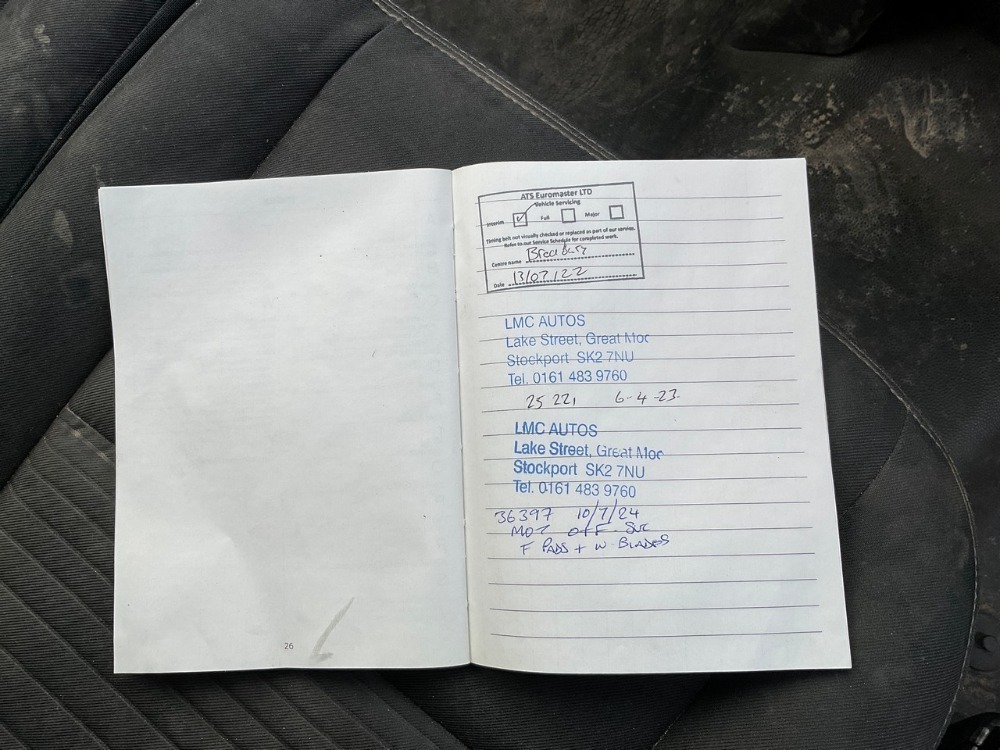 ATS Euromaster LTD
Vehicle Servicing
Interim ✓ Full Major
Timing belt not visually checked or replaced as part of our service.
Refer to our Service Schedule for completed work.
Centre name Bredbury
Date 13/07/22
LMC AUTOS
Lake Street, Great Moo
Stockport SK2 7NU
Tel. 0161 483 9760
25 221 6-4-23.
LMC AUTOS
Lake Street, Great Moo
Stockport SK2 7NU
Tel. 0161 483 9760
36397 10/7/24
MOT
F PADS + W BLADES
26